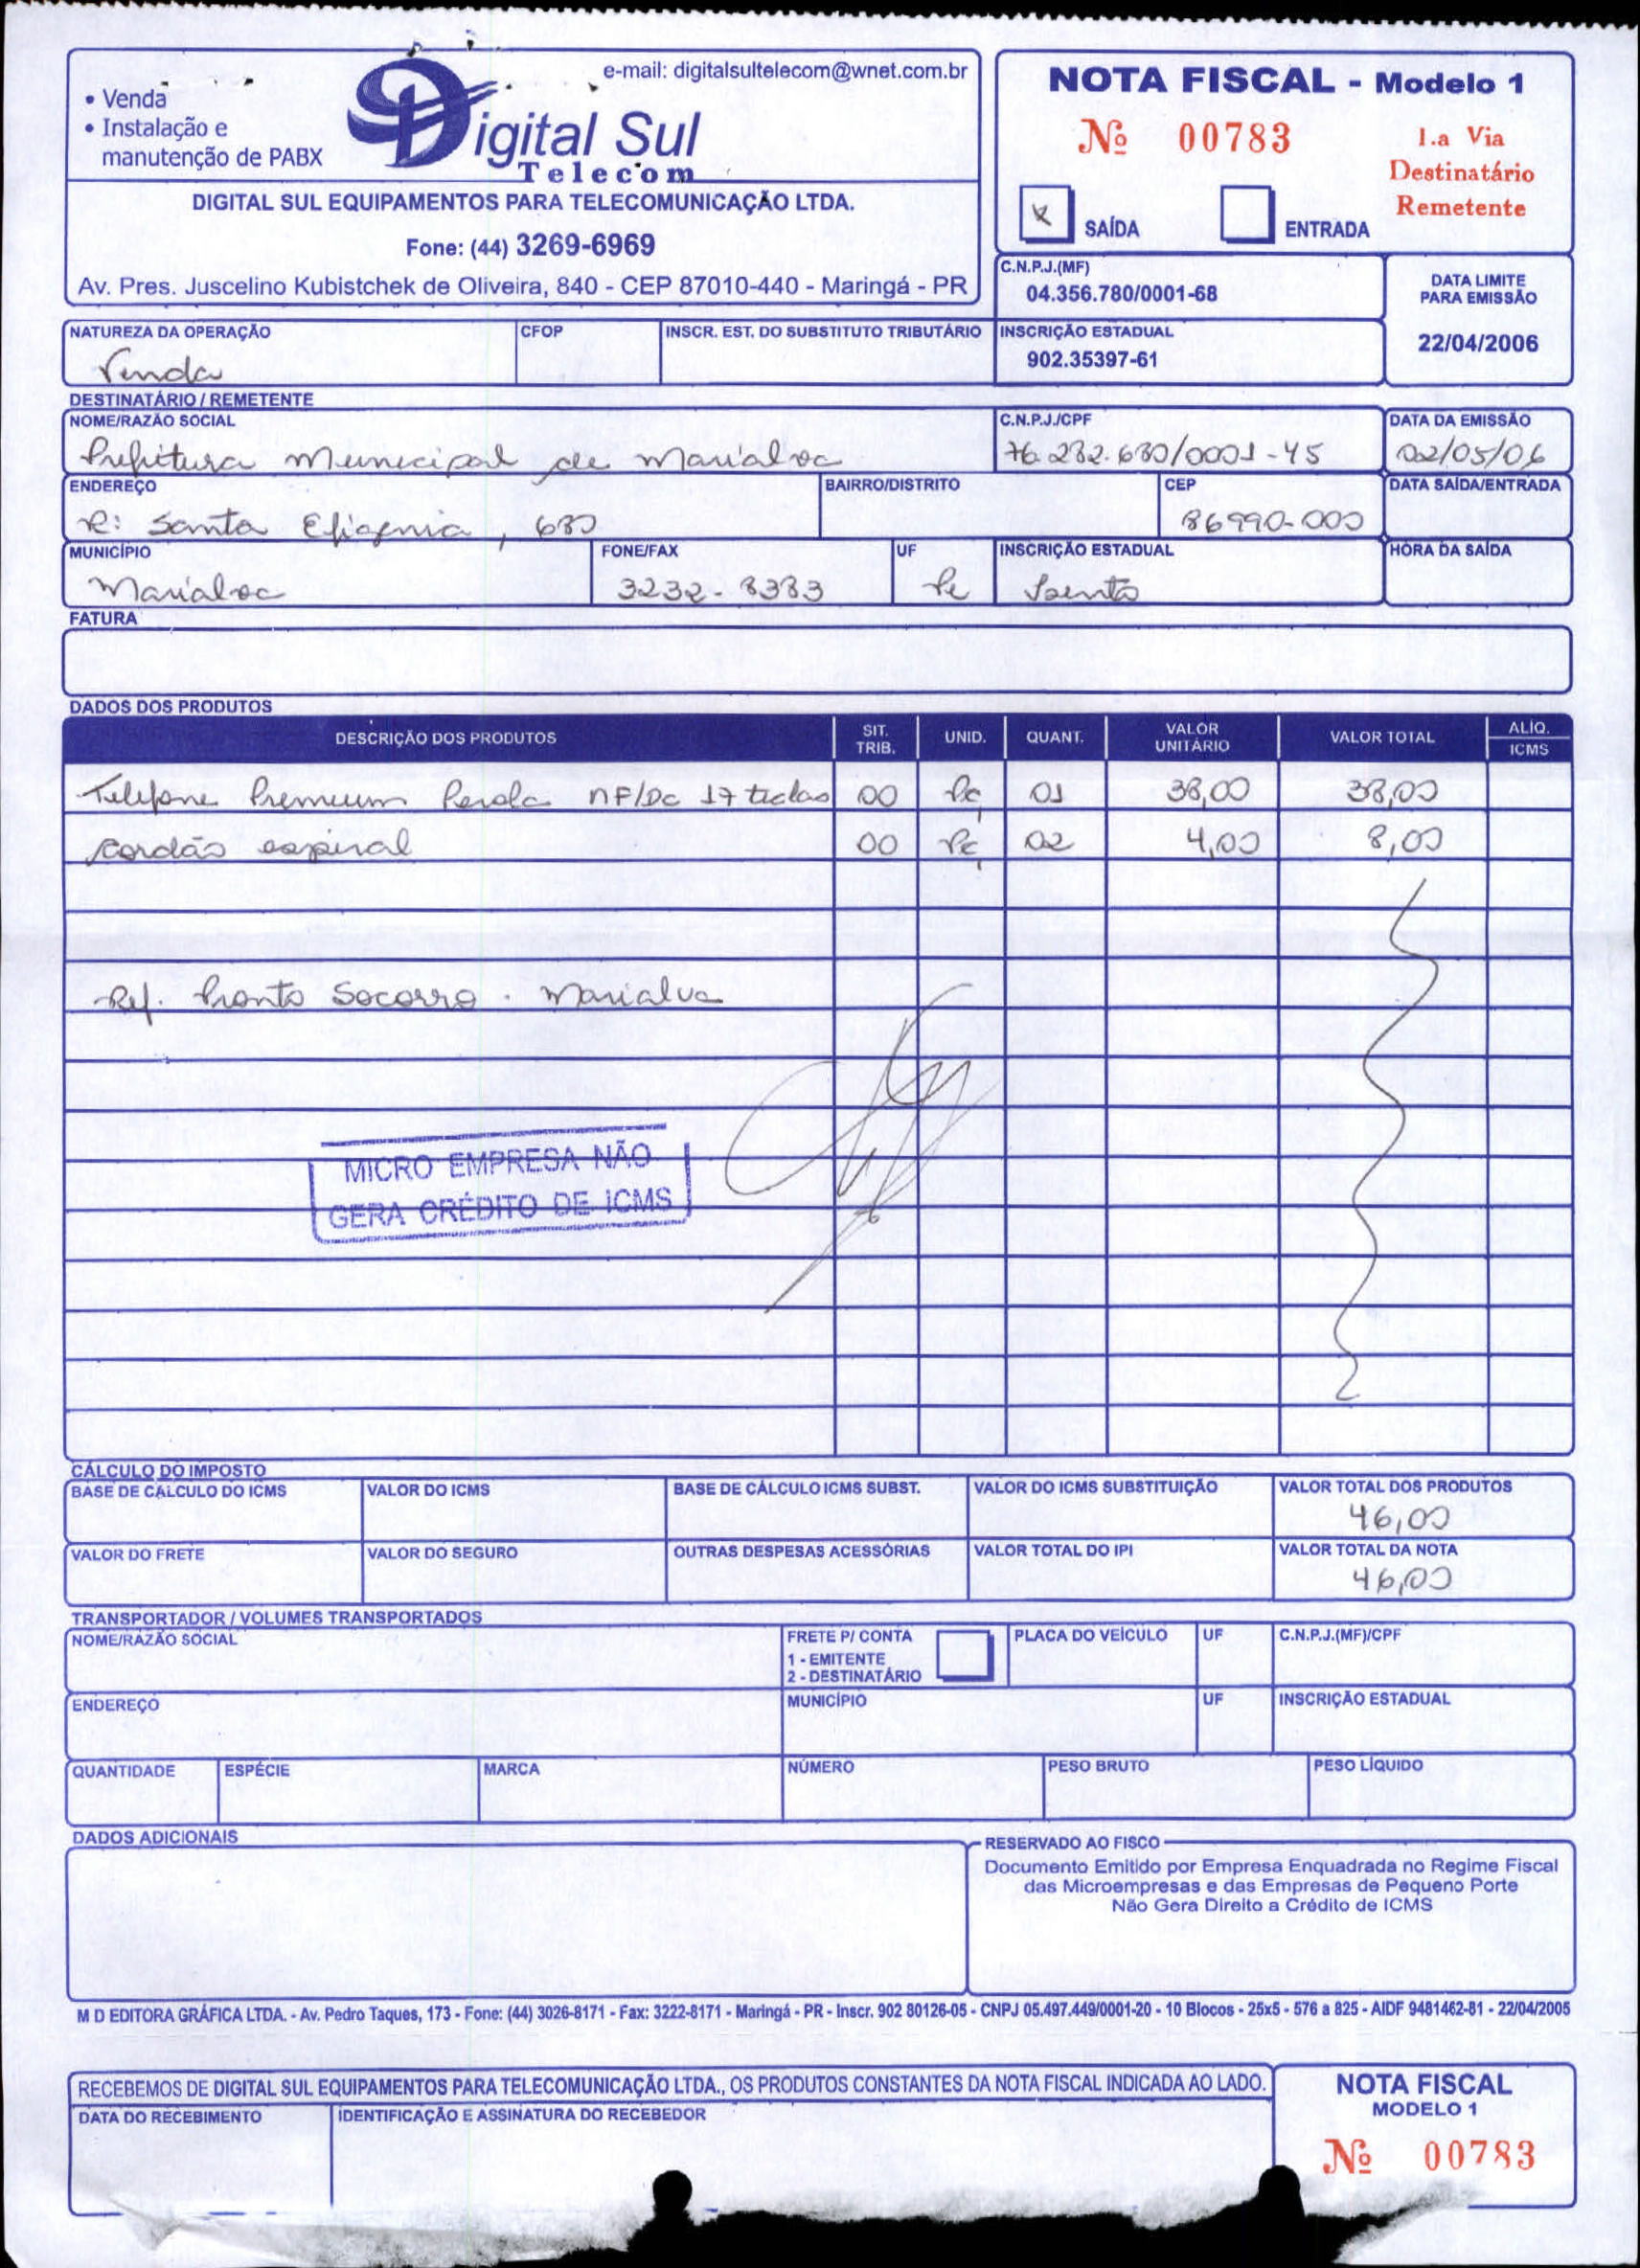 e-mail: digitalsultelecom@wnet.com.br
• Venda
• Instalação e
manutenção de PABX
Digital Sul
Telecom
DIGITAL SUL EQUIPAMENTOS PARA TELECOMUNICAÇÃO LTDA.
Fone: (44) 3269-6969
Av. Pres. Juscelino Kubistchek de Oliveira, 840 - CEP 87010-440 - Maringá - PR
NOTA FISCAL - Modelo 1
Nº 00783
1.a Via
Destinatário
Remetente
X SAÍDA ENTRADA
C.N.P.J.(MF)
04.356.780/0001-68
DATA LIMITE
PARA EMISSÃO
22/04/2006
NATUREZA DA OPERAÇÃO CFOP INSCR. EST. DO SUBSTITUTO TRIBUTÁRIO INSCRIÇÃO ESTADUAL
Venda 902.35397-61
DESTINATÁRIO / REMETENTE
NOME/RAZÃO SOCIAL C.N.P.J./CPF DATA DA EMISSÃO
Prefeitura Municipal de Marialva 76.282.680/0001-45 02/05/06
ENDEREÇO BAIRRO/DISTRITO CEP DATA SAÍDA/ENTRADA
R: Santa Efigenia, 680 86990-000
MUNICÍPIO FONE/FAX UF INSCRIÇÃO ESTADUAL HORA DA SAÍDA
Marialva 3232-8383 Pr Isento
FATURA
DADOS DOS PRODUTOS
DESCRIÇÃO DOS PRODUTOS SIT. TRIB. UNID. QUANT. VALOR UNITÁRIO VALOR TOTAL ALÍQ. ICMS
Telefone Premium Perola NF/Dc 17 teclas 00 Pç 01 38,00 38,00
cordão espiral 00 Pç 02 4,00 8,00
Ref. Pronto Socorro - Marialva
MICRO EMPRESA NÃO
GERA CRÉDITO DE ICMS
CÁLCULO DO IMPOSTO
BASE DE CÁLCULO DO ICMS VALOR DO ICMS BASE DE CÁLCULO ICMS SUBST. VALOR DO ICMS SUBSTITUIÇÃO VALOR TOTAL DOS PRODUTOS
46,00
VALOR DO FRETE VALOR DO SEGURO OUTRAS DESPESAS ACESSÓRIAS VALOR TOTAL DO IPI VALOR TOTAL DA NOTA
46,00
TRANSPORTADOR / VOLUMES TRANSPORTADOS
NOME/RAZÃO SOCIAL FRETE P/ CONTA PLACA DO VEÍCULO UF C.N.P.J.(MF)/CPF
1 - EMITENTE
2 - DESTINATÁRIO
ENDEREÇO MUNICÍPIO UF INSCRIÇÃO ESTADUAL
QUANTIDADE ESPÉCIE MARCA NÚMERO PESO BRUTO PESO LÍQUIDO
DADOS ADICIONAIS
RESERVADO AO FISCO
Documento Emitido por Empresa Enquadrada no Regime Fiscal
das Microempresas e das Empresas de Pequeno Porte
Não Gera Direito a Crédito de ICMS
M D EDITORA GRÁFICA LTDA. - Av. Pedro Taques, 173 - Fone: (44) 3026-8171 - Fax: 3222-8171 - Maringá - PR - Inscr. 902 80126-05 - CNPJ 05.497.449/0001-20 - 10 Blocos - 25x5 - 576 a 825 - AIDF 9481462-81 - 22/04/2005
RECEBEMOS DE DIGITAL SUL EQUIPAMENTOS PARA TELECOMUNICAÇÃO LTDA., OS PRODUTOS CONSTANTES DA NOTA FISCAL INDICADA AO LADO.
DATA DO RECEBIMENTO IDENTIFICAÇÃO E ASSINATURA DO RECEBEDOR
NOTA FISCAL
MODELO 1
Nº 00783